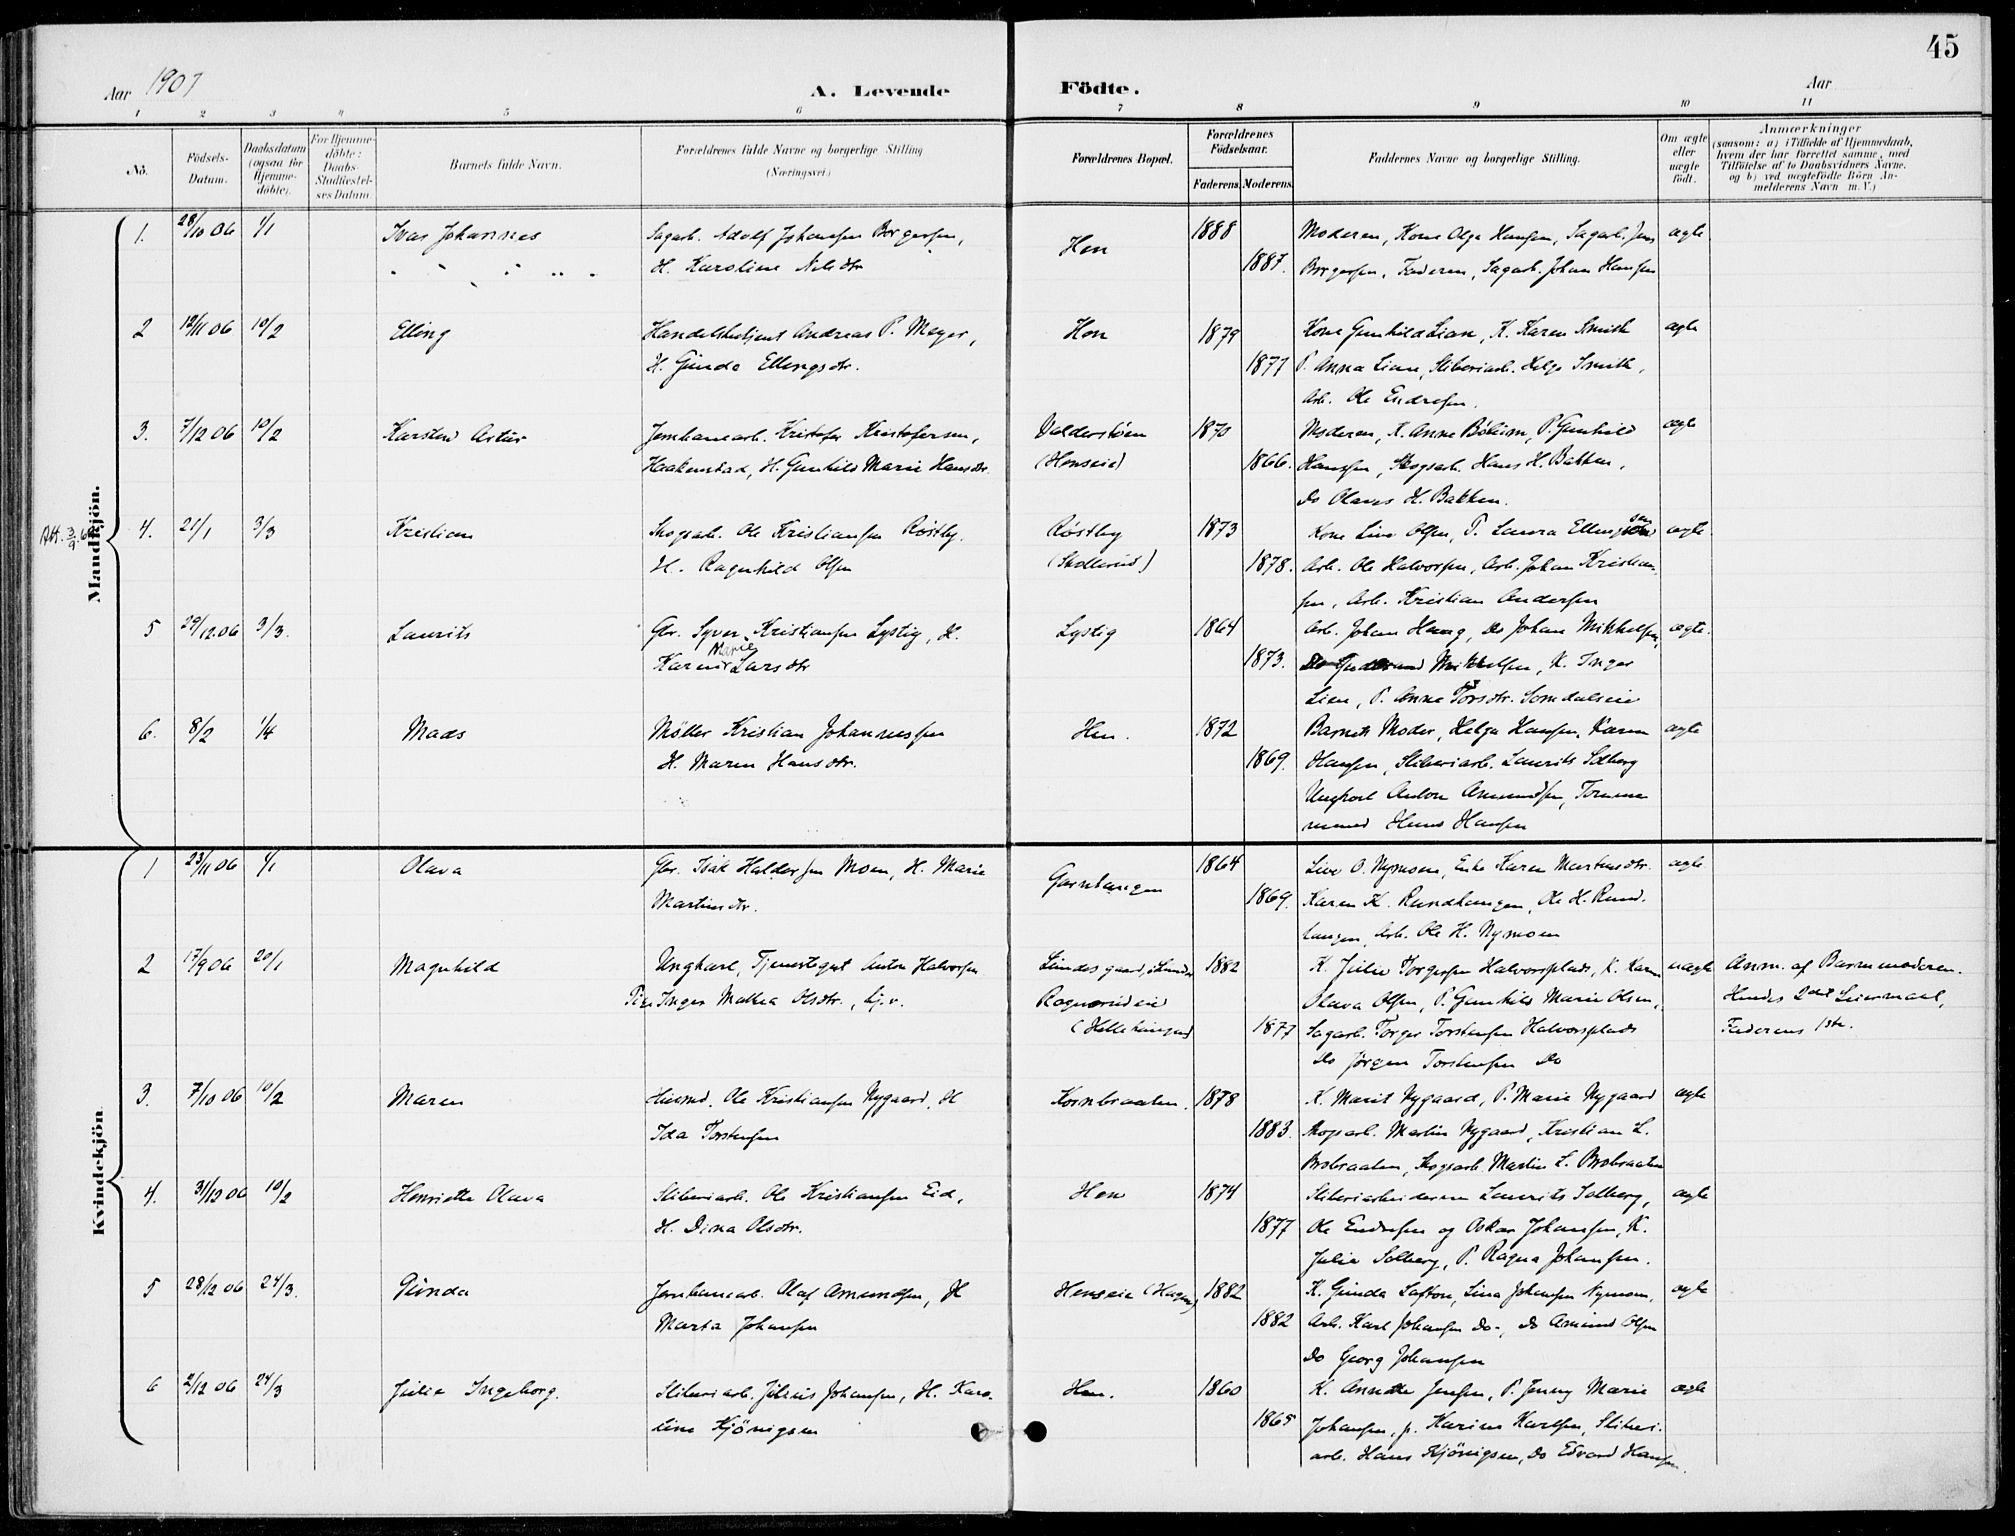 45
Aar 1907
A. Levende Födte.
Aar
1 2 3 4 5 6 7 8 9 10 11
Nö.
Födsels-Datum.
Daabsdatum (ogsaa for Hjemmedöbte).
For Hjemmedöbte: Daabs-Stadfæstelses Datum
Barnets fulde Navn.
Forældrenes fulde Navne og borgerlige Stilling (Næringsvei.)
Forældrenes Bopæl.
Forældrenes Födselsaar.
Faderens. Moderens.
Faddernes Navne og borgerlige Stilling.
Om ægte eller uægte födt.
Anmærkninger (saasom: a) i Tilfælde af Hjemmedaab, hvem der har forrettet samme, med Tilföielse af to Daabsvidners Navne, og b) ved uægtefödte Börn Anmelderens Navn m.V.)
Mandkjön.
1. 28/10 06 1/1 Ivar Johannes Sagarb. Adolf Johansen Borgersen, Hen 1888 Moderen, Kone Olga Hansen, Sagarb. Jens ægte
H. Karoline Nilsdtr 1887. Borgersen, Faderen, Sagarb. Johan Hansen
2 12/11 06 10/2 Elling Handelsbetjent Andreas P. Meyer, Hen 1879 Kone Gunhild Lian, K. Karen Smith ægte
H. Gunda Ellingsdtr. 1877 P. Anna Lian, Sliberiarb. Helge Smith,
Arb. Ole Endresen.
3. 7/12 06 10/2 Karsten Artur Jernbanearb. Kristofer Kristofersen, Valderstøen 1870 Moderen, K. Anne Bøhum, P. Gunhild ægte
Haakenstad, H. Gunhild Marie Hansdtr. (Henseie) 1866. Hansen, Skogsarb. Hans H. Bakken,
Do Olaves H. Bakken.
Att. 3/9
4. 21/1 3/3 Kristian Skogsarb. Ole Kristiansen Røstby. Røstby 1873 Kone Live Olsen, P. Laura Ellingsen ægte
H. Ragnhild Olsen (Skollerud) 1878. Arb. Ole Halvorsen, Arb. Johan Kristian
sen, Arb. Kristian Andersen
5 29/12.06 3/3. Laurits Gbr. Syver Kristiansen Lystig, H. Lystig 1864 Arb. Johan Haug, Do Johan Mikkelsen, ægte.
Karen Marie Larsdtr 1873. Do Gudmund Mikkelsen, K. Inger
Lien, P. Anne Torsdtr. Somdalseie
6. 8/2 1/4 Mads Møller Kristian Johannessen Hen. 1872 Barnets Moder, Helga Hansen, Karen ægte
H. Maren Hansdtr. 1869. Hansen, Sliberiarb. Laurits Solberg
Ungkarl Anton Amundsen, Tømmer
mand Hans Hansen
Kvindekjön
1 23/11 06 1/1 Olava Gbr. Isak Haldorsen Moen, H. Marie Garntangen 1864 Live O. Nymoen, Enke Karen Martinsdtr. ægte
Martinsdtr. 1869. Karen K. Rundtangen, Ole H. Rund.
tangen, Arb. Ole H. Nymoen
2 17/9 06 20/1 Magnhild Ungkarl, Tjenestegut Anton Halvorsen Lundesgaard, 1882 K. Julie Torgersen Halvorsplads, K. Karen uægte Anm. af Barnemoderen.
Pige Inger Mathea Olsdtr. Ragnerudeie Olava Olsen, P. Gunhild Marie Olsen, Hendes 2det Leiermaal,
1877 Sagarb. Torger Torstensen Halvorsplads Faderens 1ste.
Do Jørgen Torstensen Do
3. 7/10 06 10/2 Maren Husmd. Ole Kristiansen Nygaard, H Kornbraaten. 1878 K. Marit Nygaard, P. Marie Nygaard ægte
Ida Torstensen 1883. Skogsarb. Martin Nygaard, Kristian L.
Brobraaten, Skogsarb. Martin L. Brobraaten
4. 31/10 06 10/2 Henriette Olava Sliberiarb. Ole Kristiansen Eid, Hen 1874 Sliberiarbeiderne Laurits Solberg, ægte
H. Dina Olsdtr. 1877 Ole Endresen og Oskar Johansen, K.
Julie Solberg, P. Ragna Johansen.
5 28/12 06 24/3. Gunda Jernbanearb. Olaf Amundsen, H Henseie (Hagen) 1882 K. Gunda Lafton, Lina Johansen Nymoen, ægte
Marta Johansen 1882 Arb. Karl Johansen Do-, Do Amund Olsen
Do Georg Johansen
6 2/12 06 24/3 Julie Ingeborg. Sliberiarb. Julius Johansen, H. Karo- Hen. 1860 K. Annette Jensen, P. Jenny Marie ægte
line Kjønigsen 1865 Johansen, p. Karine Karlsen, Sliberi.
arb. Hans Kjønigsen, Do Edvard Hansen.